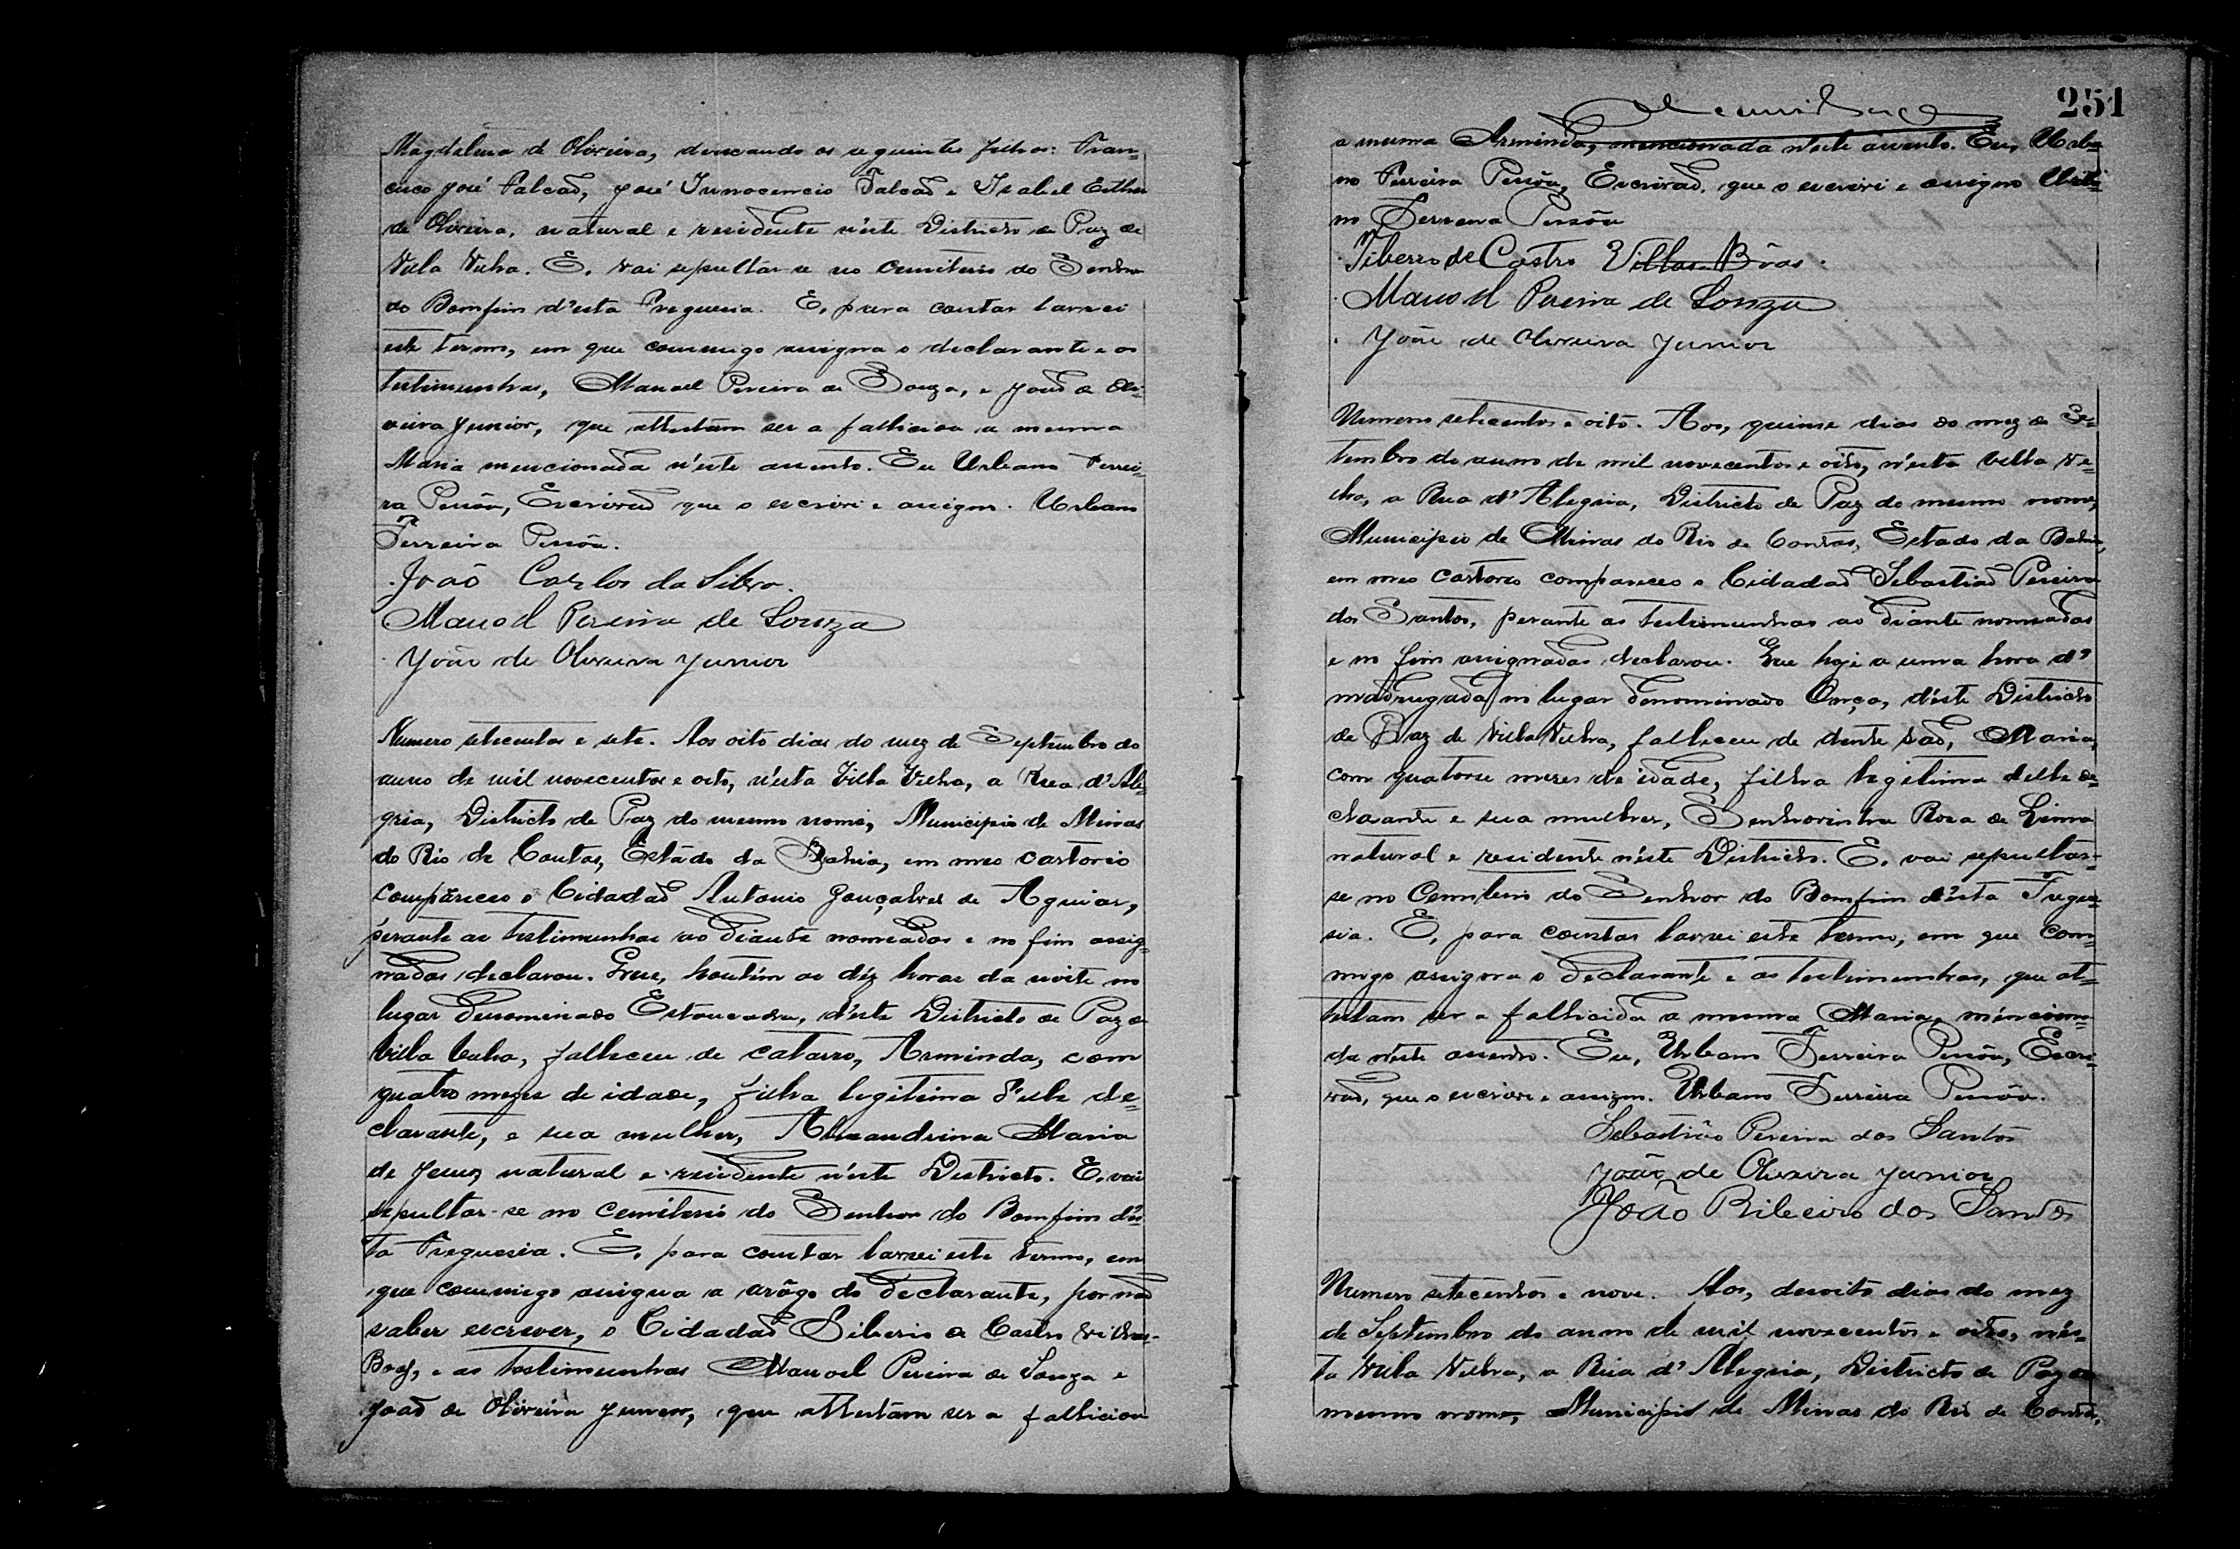 Magdalena de Oliveira, deixando os seguintes filhos: Fran-
cisco José Falcaõ, José Innocencio Falcaõ e Isabel Esther
de Oliveira, natural e residente n'este Districto de Paz de
Villa Velha. E, vai sepultar-se no cemiterio do Senhor
do Bomfim d'esta Freguesia. E, para constar lavrei
este termo, em que commigo assigna o declarante e as
testimunhas, Manoel Pereira de Souza, e Joaõ de Oli-
veira Junior, que attestam ser a fallicida a mesma
Maria mencionada n'este assento. Eu Urbano Ferrei-
ra Pessôa, Escrivaõ que o escrevi e assigno. Urbano
Ferreira Pessôa.
João Carlos da Silva.
Manoel Pereira de Souza
João de Oliveira Junior
Numero setecentos e sete. Aos oito dias do mez de Septembro do
anno de mil novecentos e oito, n'esta Villa Velha, a Rua d'Ale-
gria, Districto de Paz do mesmo nome, Municipio de Minas
do Rio de Contas, Estado da Bahia, em meo cartorio
compareceo o Cidadaõ Antonio Gonçalves de Aguiar,
perante as testimunhas ao diante nomeadas e no fim assig-
nadas declarou. Que, hontem as déz horas da noite no
lugar denominado d'este Districto de Paz de
Villa Velha, falleceu de catarro, Arminda, com
quatro mezes de idade, filha legitima d'elle de-
clarante, e sua mulher, Alexandrina Maria
de Jesus, natural e residente n'este Districto. E, vai
sepultar-se no cemiterio do Senhor do Bomfim d'es-
ta Freguesia. E, para constar lavrei este termo, em
que commigo assigna a arôgo do declarante, por naõ
saber escrever, o Cidadaõ Tiberio de Castro Villas-
Boas, e as testimunhas Manoel Pereira de Souza e
Joaõ de Oliveira Junior, que attestam ser a fallicida
251
a mesma Arminda, mencionada n'este assento. Eu, Urba-
no Ferreira Pessôa, Escrivaõ, que o escrevi e assigno Urba-
no Ferreira Pessôa
Tiberio de Castro Villas Bôas.
Manoel Pereira de Souza
João de Oliveira Junior
Numero setecentos e oito. Aos, quinse dias do mez de Se-
tembro do anno de mil novecentos e oito, n'esta Villa Ve-
lha, a Rua d'Alegria, Districto de Paz do mesmo nome,
Municipio de Minas do Rio de Contas, Estado da Bahia,
em meo cartorio compareceo o Cidadaõ Sebastiaõ Pereira
dos Santos, perante as testimunhas ao diante nomeadas
e no fim assignadas declarou. Que hoje a uma hora da
madrugada no lugar denominado Onça, d'este Districto
de Paz de Villa Velha, falleceu de dentesaõ, Maria,
com quatorse meses de idade, filha legitima delle de-
clarante e sua mulher, Senhorinha Rosa de Lima
natural e residente n'este Districto. E, vai sepultar-
se no Cemiterio do Senhor do Bomfim d'esta Fregue-
sia. E, para constar lavrei este termo, em que com-
migo assigna o declarante e as testimunhas, que at-
testam ser a fallicida a mesma Maria, menciona-
da n'este assento. Eu, Urbano Ferreira Pessôa, Escri-
vaõ, que o escrevi e assigno. Urbano Ferreira Pessôa.
Sebastião Pereira dos Santos
João de Oliveira Junior
João Ribeiro dos Santos
Numero setecentos e nove. Aos, desoito dias do mez
de Septembro do anno de mil novecentos e oito, n'es-
ta Villa Velha, a Rua d'Alegria, Districto de Paz do
mesmo nome, Municipio de Minas do Rio de Contas,